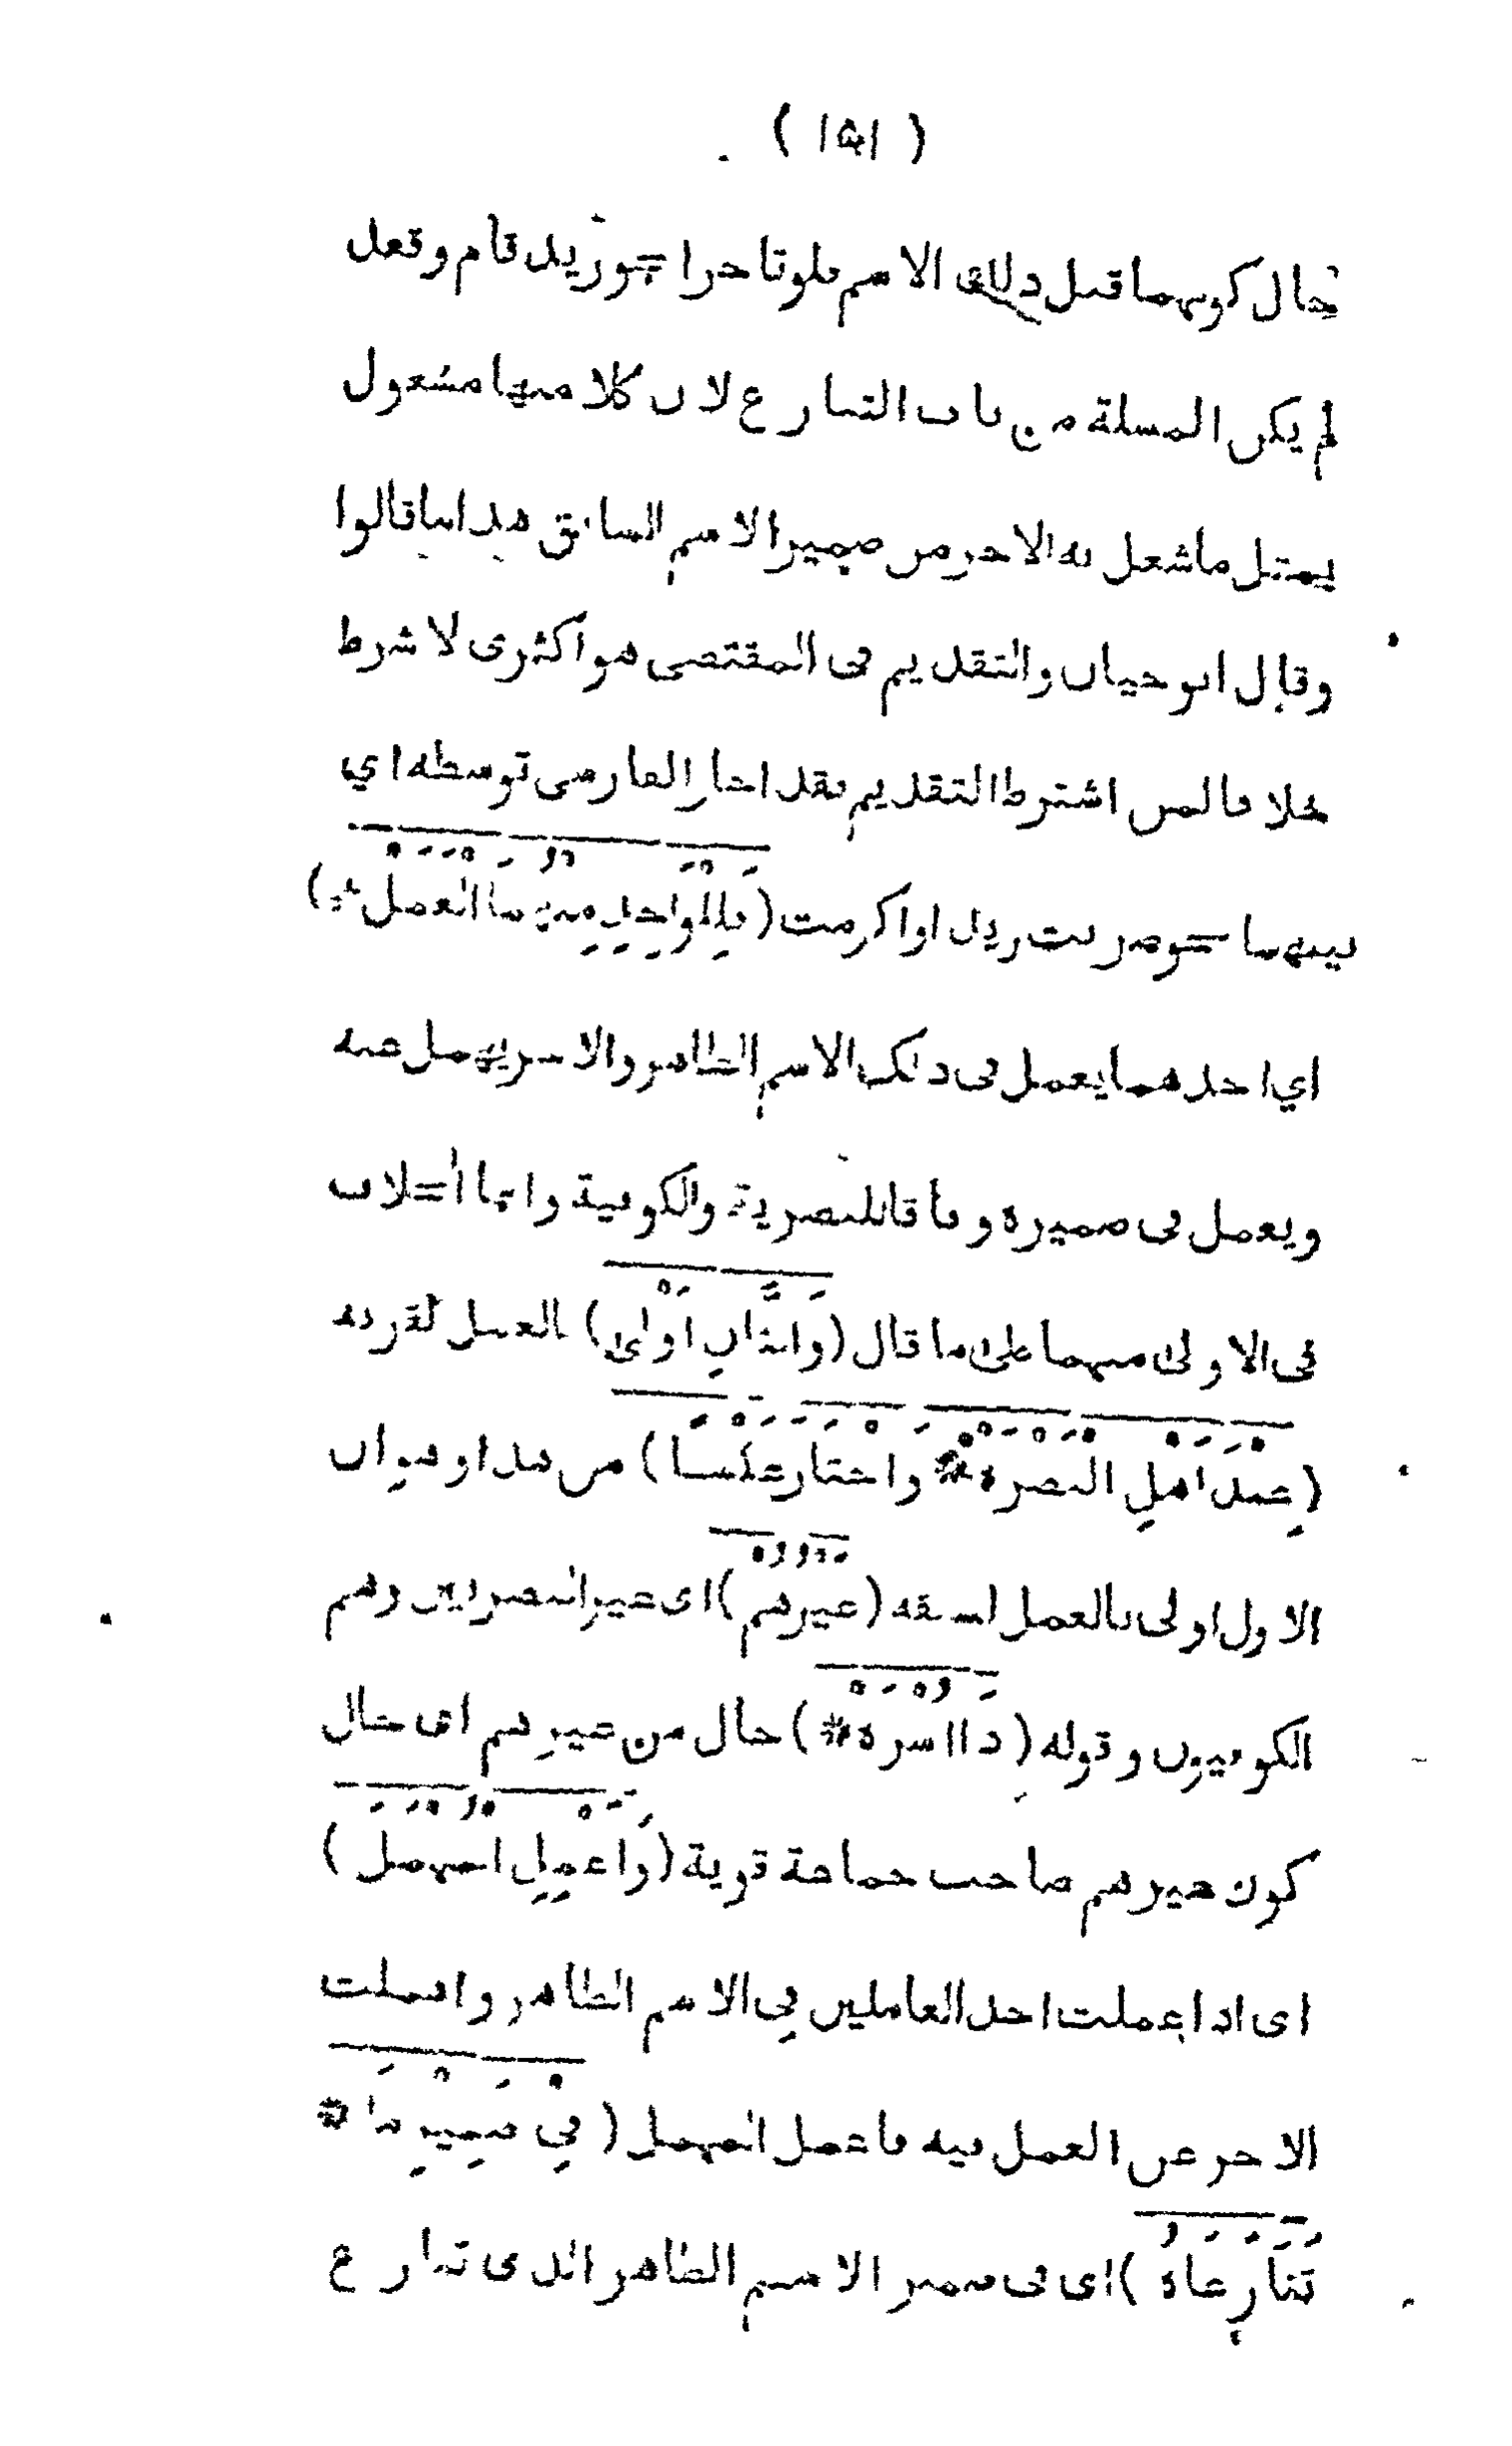 ( ١٥١ )
حال كونهما قبل ذلك الاسم فلو تاخرا نحو زيد قام وقعد
لم يكن المسئلة من باب التنازع لان كلا منهما مشغول
بمثل ما شغل به الاخر من ضمير الاسم السابق هذا ما قالوا
وقال ابو حيان والتقديم في المقتضى هو اكثرى لا شرط
خلافا لمن اشترط التقديم فقد اجاز الفارسى توسطه اي
بينهما نحو ضربت زيدا واكرمت (فَلِلْوَاحِدِ مِنْهُمَا الْعَمَلْ *)
اي احدهما يعمل فى ذلك الاسم الظاهر والاخر يهمل عنه
ويعمل فى ضميره وفاقا للبصرية والكوفية وانما الخلاف
فى الاولى منهما على ما قال (وَالثَّانِ اَوْلى) بالعمل لقربه
(عِنْدَ اَهْلِ الْبَصْرَهْ * وَاخْتَارَ عَكْسًا) من هذا وهو ان
الاول اولى بالعمل لسبقه (غَيْرُهُمْ) اى غير البصريين وهم
الكوفيون وقوله (ذَا اُسْرَهْ *) حال من غيرهم اى حال
كون غيرهم صاحب جماعة قوية (وَاَعْمِلِ الْمُهْمَلَ)
اى اذا عملت احد العاملين في الاسم الظاهر واهملت
الاخر عن العمل فيه فاعمل المهمل (فِي ضَمِيْرِ مَا *
تَنَازَعَاهُ) اى فى ضمير الاسم الظاهر الذى تنازع